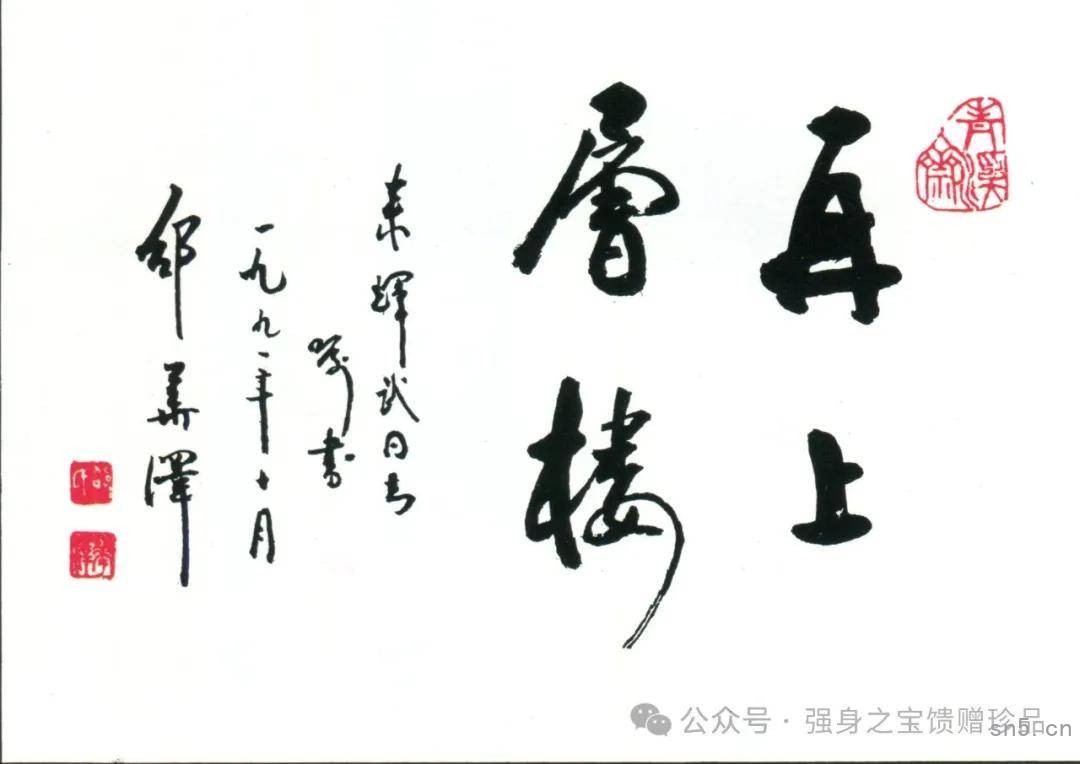 再上
層樓
来輝武同志
嘱書
一九九一年十月
邵華澤
公众号 · 强身之宝馈赠珍品
sn5.cn